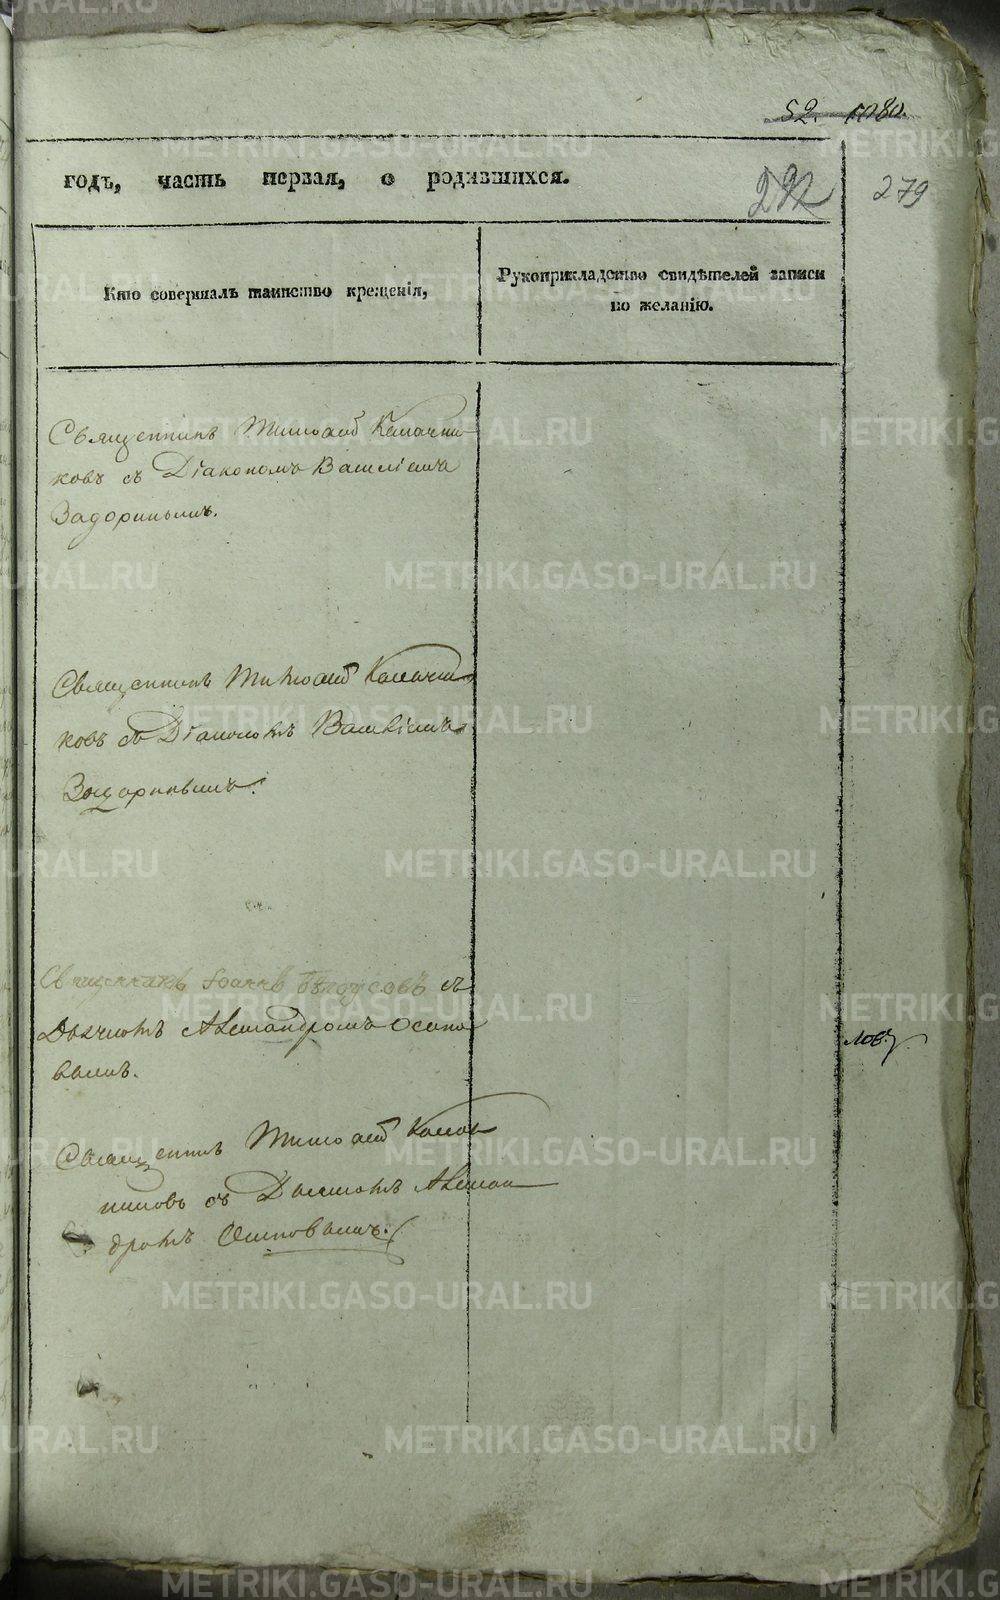 52. 1080.
годъ, часть первая, о родившихся.
292
279
Кто совершалъ таинство крещенія,
Рукоприкладство свидѣтелей записи
по желанію.
Священникъ Тимоѳей Калачни-
ковъ съ Діакономъ Василіемъ
Задоринымъ.
Священникъ Тимоѳей Калачни-
ковъ съ Діакономъ Василіемъ
Задоринымъ.
Священникъ Іоаннъ съ
Дьячкомъ Александромъ Осипо-
вымъ.
Священникъ Тимоѳей Калач-
никовъ съ Дьячкомъ Алексан-
дромъ Осиповымъ.
METRIKI.GASO-URAL.RU